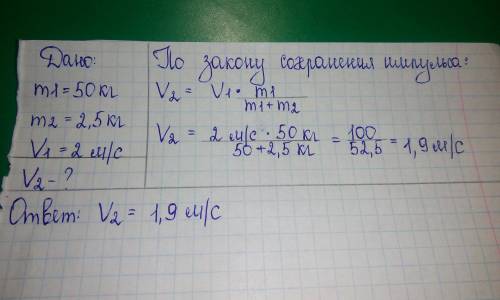 Дано:
m1 = 50 кг
m2 = 2,5 кг
V1 = 2 м/с
V2 - ?
По закону сохранения импульса:
V2 = V1 · m1 / m1 + m2
V2 = 2 м/с · 50 кг / 50 + 2,5 кг = 100 / 52,5 = 1,9 м/с
Ответ: V2 = 1,9 м/с